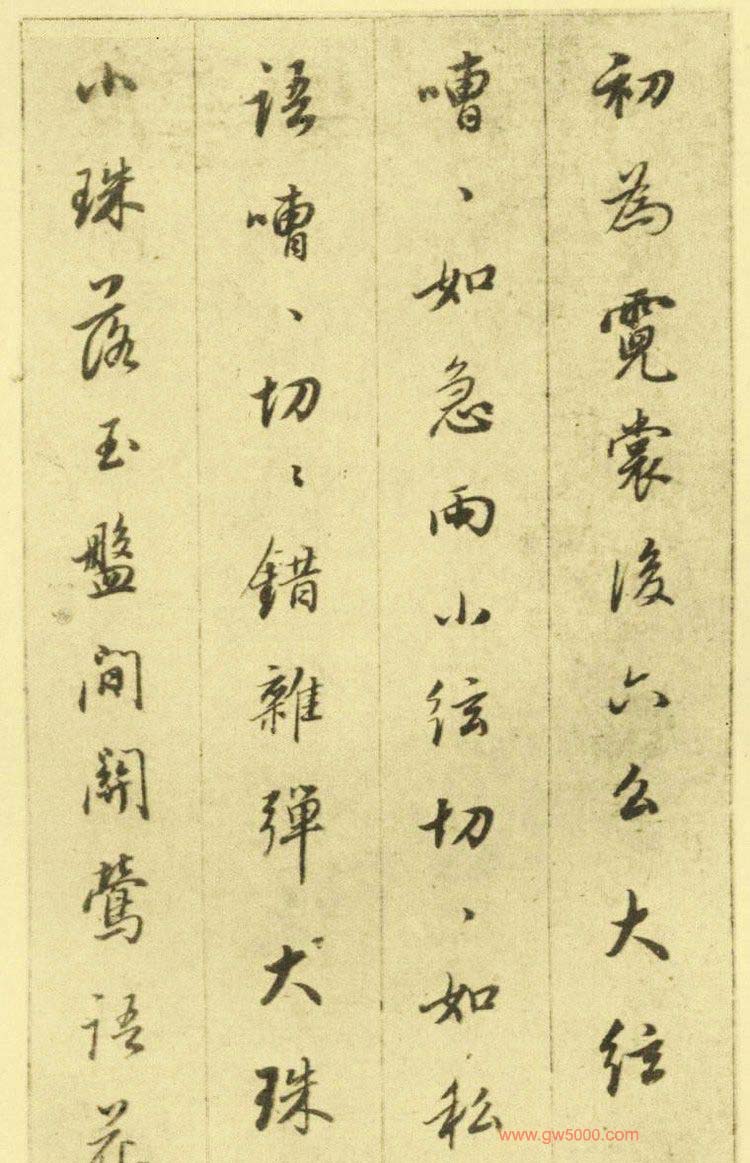 初為霓裳後六么大絃
嘈、如急雨小絃切、如私
語嘈、切、錯雜彈大珠
小珠落玉盤間關鶯語花
www.gw5000.com